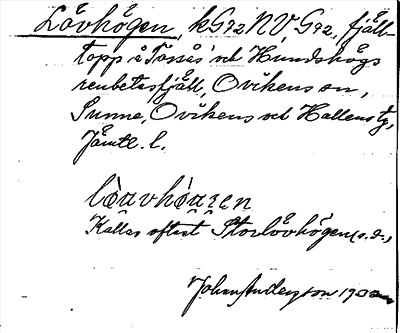 Låvhögen, kG92NVG92, fjäll-
topp å Tossås' och Hundshögs
renbetesfjäll, Ovikens sn,
Sunne, Ovikens och Hallens tg,
Jämtl. l.
lòavhòaren
Kallas oftast Storlåvhögen (s.d.)
Johan Anderson 1933